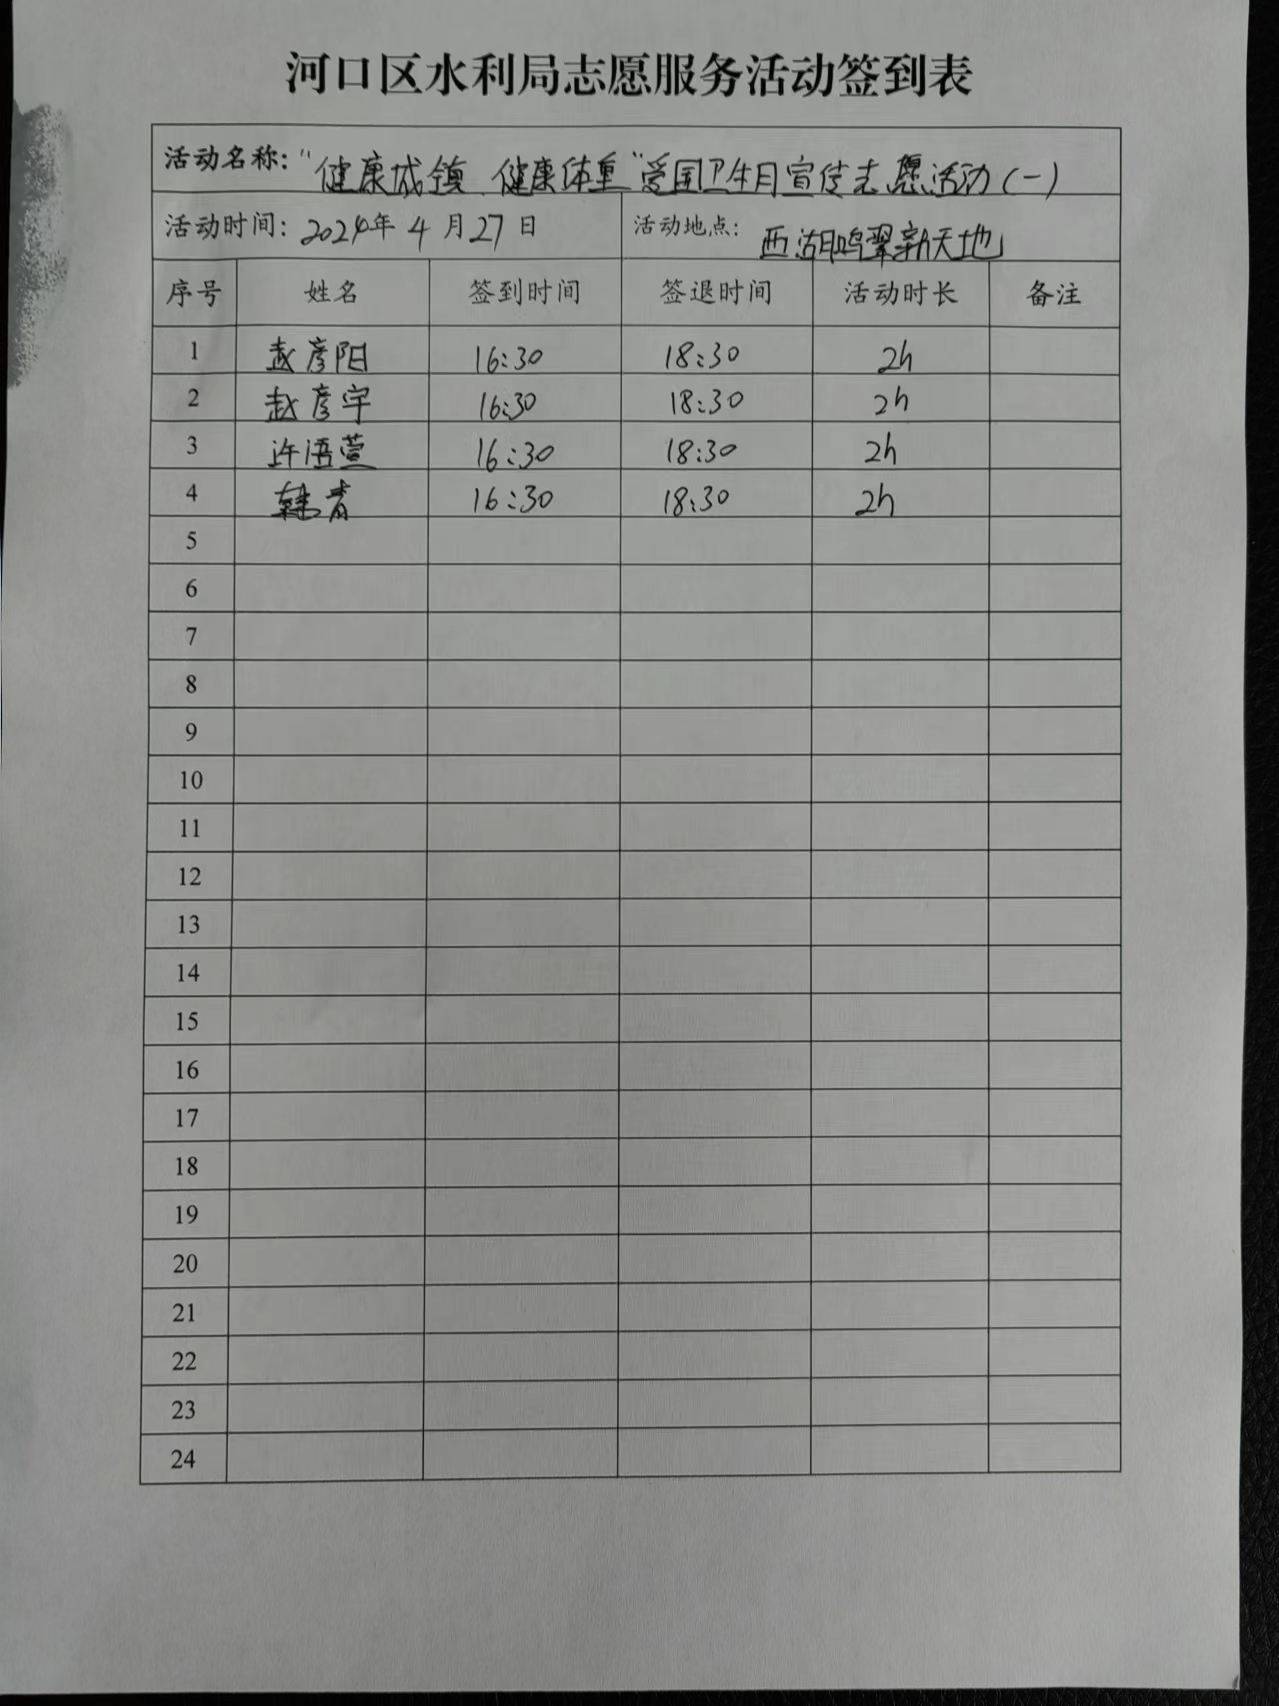 河口区水利局志愿服务活动签到表
活动名称："健康城镇 健康体重"爱国卫生月宣传志愿活动(一)
活动时间：2024年4月27日 活动地点：西湖鸣翠新天地
序号 姓名 签到时间 签退时间 活动时长 备注
1 赵彦阳 16:30 18:30 2h
2 赵彦宇 16:30 18:30 2h
3 许语萱 16:30 18:30 2h
4 韩青 16:30 18:30 2h
5
6
7
8
9
10
11
12
13
14
15
16
17
18
19
20
21
22
23
24